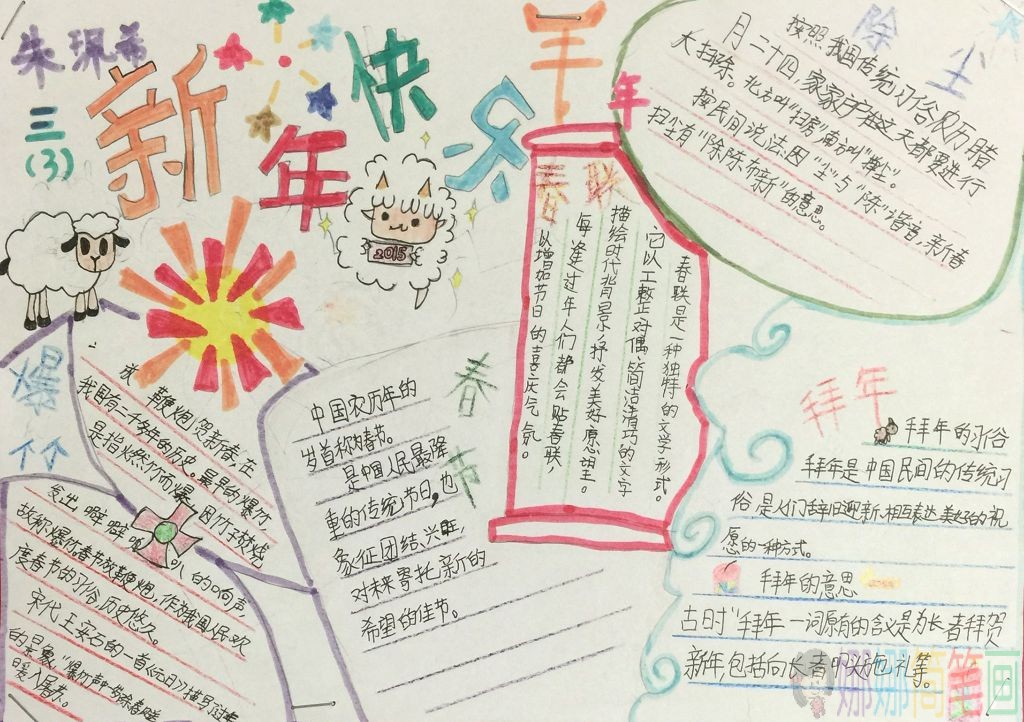 朱珮希
三
(3)
新年快乐
羊年
2015
除尘
按照我国传统习俗及历腊
月二十四,家家户户在这天都要进行
大扫除。北方叫"扫房"南方叫"掸尘"。
按民间说法:因"尘"与"陈"谐音,新春
扫尘有"除陈布新"的意思。
春联
春联是一种独特的文学形式。
它以工整正对偶、简洁清巧的文字
描绘时代背景,抒发美好愿望。
每逢过年人们都会贴春联,
以增加节日的喜庆气氛。
爆竹
放鞭炮贺新春,在
我国有二千多年的历史。最早的爆竹
是指燃竹而爆,因竹子焚烧
发出噼噼啪啪的响声,
故称爆竹。春节放鞭炮,作为我国人民欢
度春节的习俗历史悠久。
宋代王安石的一首《元日》描写过去
的景象"爆竹声中一岁除春风送
暖入屠苏。
春节
中国农历年的
岁首称为春节。
是中国人民最隆
重的传统节日,也
象征团结、兴旺,
对未来寄托新的
希望的佳节。
拜年
拜年的习俗
拜年是中国民间的传统习
俗是人们辞旧迎新、相互表达美好的祝
愿的一种方式。
拜年的意思
古时"拜年一词原有的含义是为长者拜贺
新年,包括向长者叩头施礼等。
娜娜简笔画